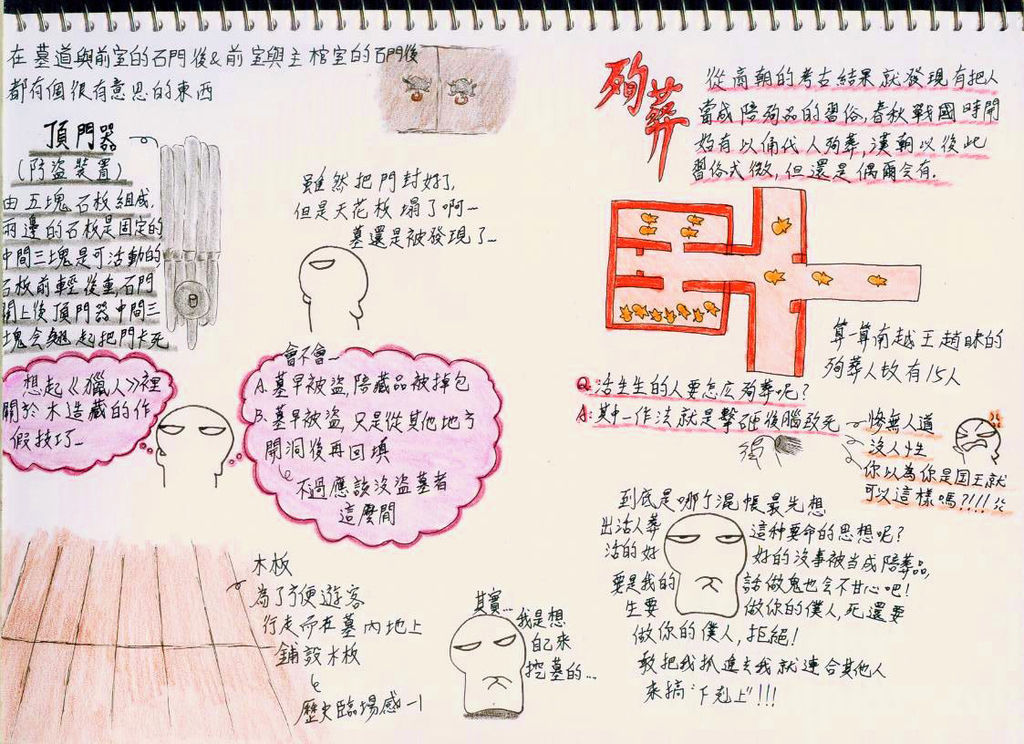 在墓道與前室的石門後&前室與主棺室的石門後
都有個很有意思的東西
頂門器
(防盜裝置)
由五塊石板組成,
兩邊的石板是固定的
中間三塊是可活動的
石板前輕後重,石門
關上後頂門器中間三
塊會翹起把門卡死
雖然把門封好了,
但是天花板塌了啊~
墓還是被發現了~
想起《獵人》裡
關於木造藏的作
假技巧~
會不會~
A.墓早被盜,陪藏品被掉包
B.墓早被盜,只是從其他地方
開洞後再回填
不過應該沒盜墓者
這麼閒
木板
為了方便遊客
行走而在墓內地上
鋪設木板
歷史臨場感-1
其實…
我是想
自己來
挖墓的…
殉葬
從商朝的考古結果就發現有把人
當成陪殉品的習俗,春秋戰國時開
始有以俑代人殉葬,漢朝以後此
習俗式微,但還是偶爾會有.
算一算南越王趙眜的
殉葬人數有15人
Q:活生生的人要怎么殉葬呢?
A:其中一作法就是擊砸後腦致死
慘無人道
沒人性
你以為你是国王就
可以這樣嗎?!!!!
到底是哪个混帳最先想
出活人葬這种要命的思想呢?
活的好好的沒事被当成陪葬品,
要是我的話做鬼也会不甘心吧!
生要做你的僕人,死還要
做你的僕人,拒絕!
敢把我扒進去我就連合其他人
來搞"下剋上"!!!